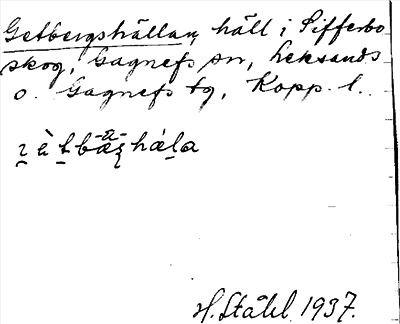 Getbergshällan, häll i Sifferbo
skog, Gagnefs sn, Leksands
o. Gagnefs tg, Kopp. l.
H. Ståhl 1937.